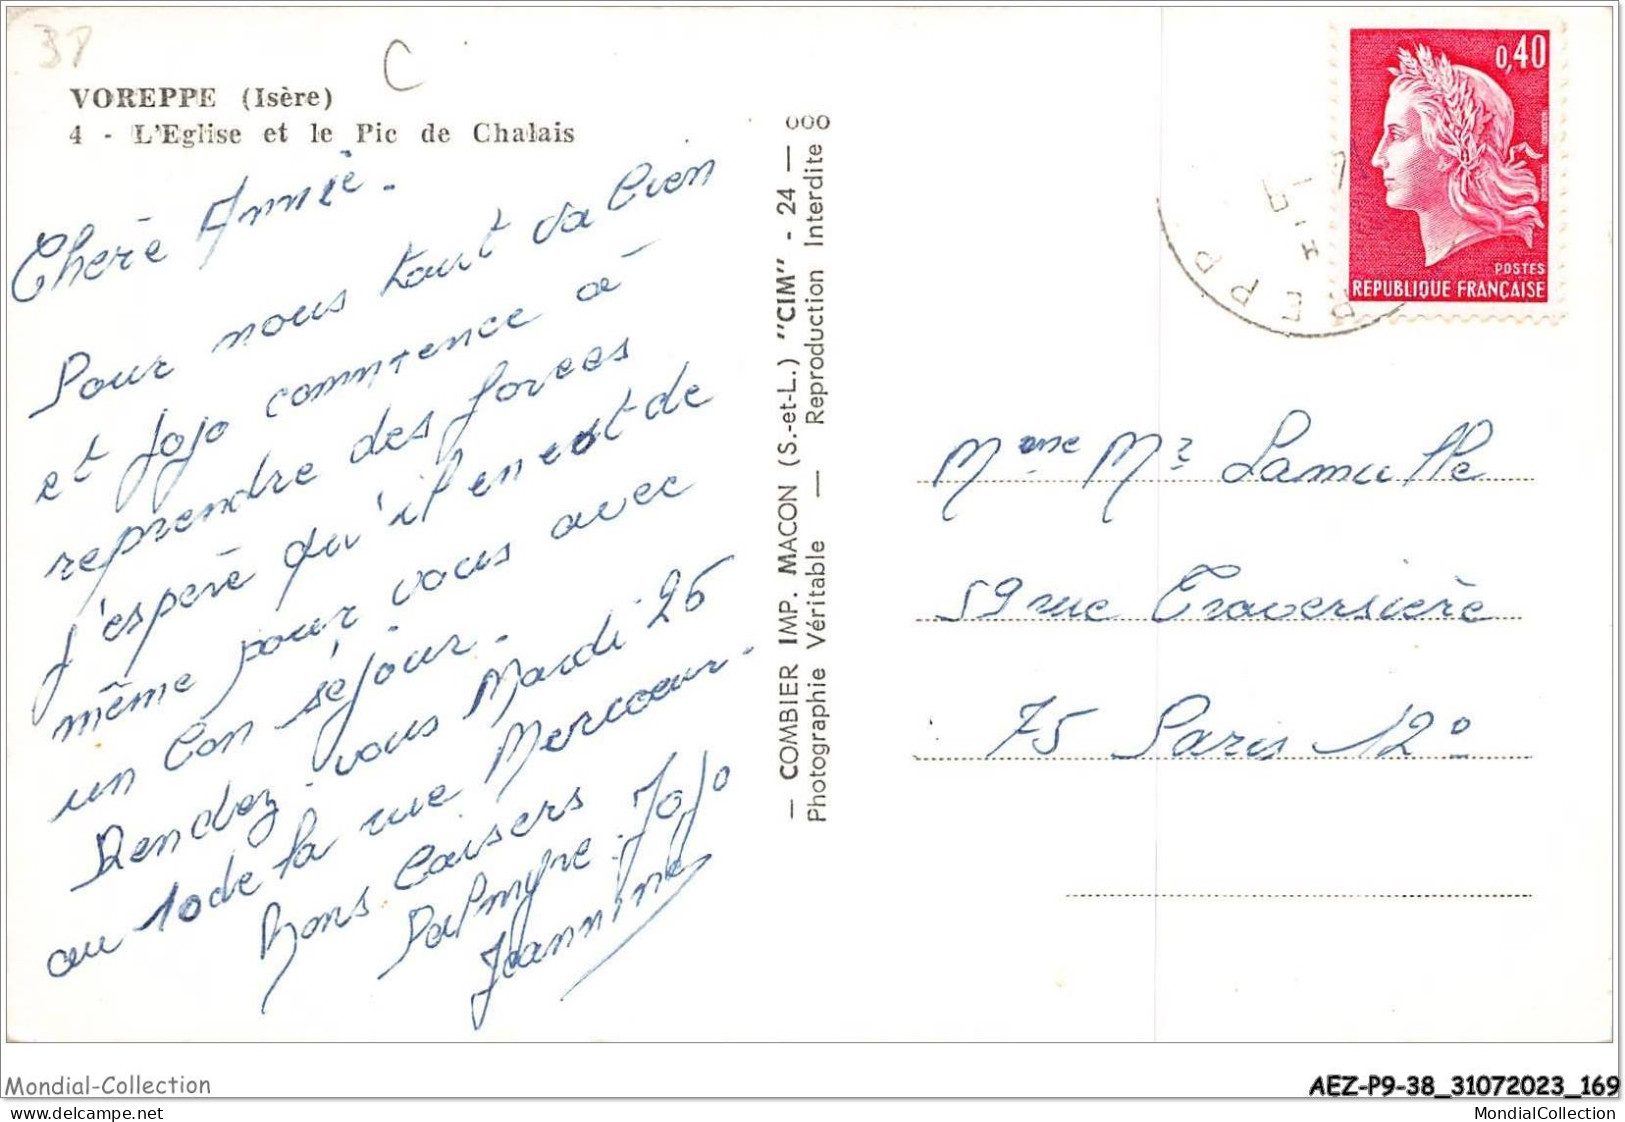 38
C
VOREPPE (Isère)
4 - L'Eglise et le Pic de Chalais
Chère Annie.
Pour nous tout va bien
et Jojo commence à
reprendre des forces
j'espère qu'il en est de
même pour vous avec
un bon séjour.
Rendez-vous Mardi 26
au 10 de la rue Mercoeur.
Bons baisers Jojo
Palmyre.
Jeannine
— COMBIER IMP. MACON (S.-et-L.) "CIM" - 24 — 000
Photographie Véritable — Reproduction Interdite
0,40
POSTES
REPUBLIQUE FRANÇAISE
REPP
Mme Mr Lamulle
59 rue Traversière
75 Paris 12°
Mondial-Collection
AEZ-P9-38_31072023_169
delcampe.net
MondialCollection